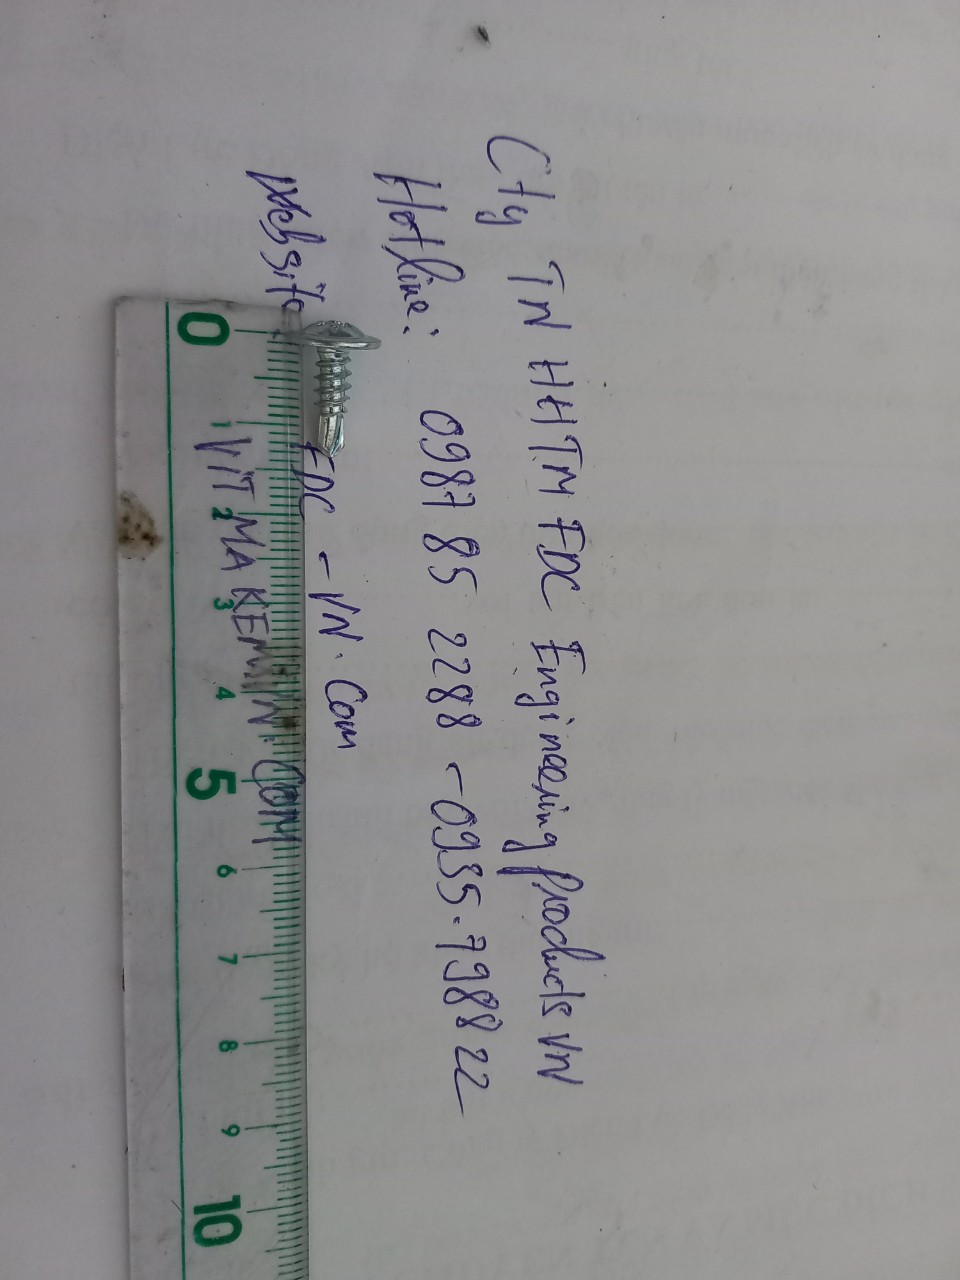 Cty TNHHTM FDC Engineering products VN
Hotline: 0987 85 2288 - 0935.798822
Website FDC - VN.Com
VITMAKEMVN.COM
0 1 2 3 4 5 6 7 8 9 10